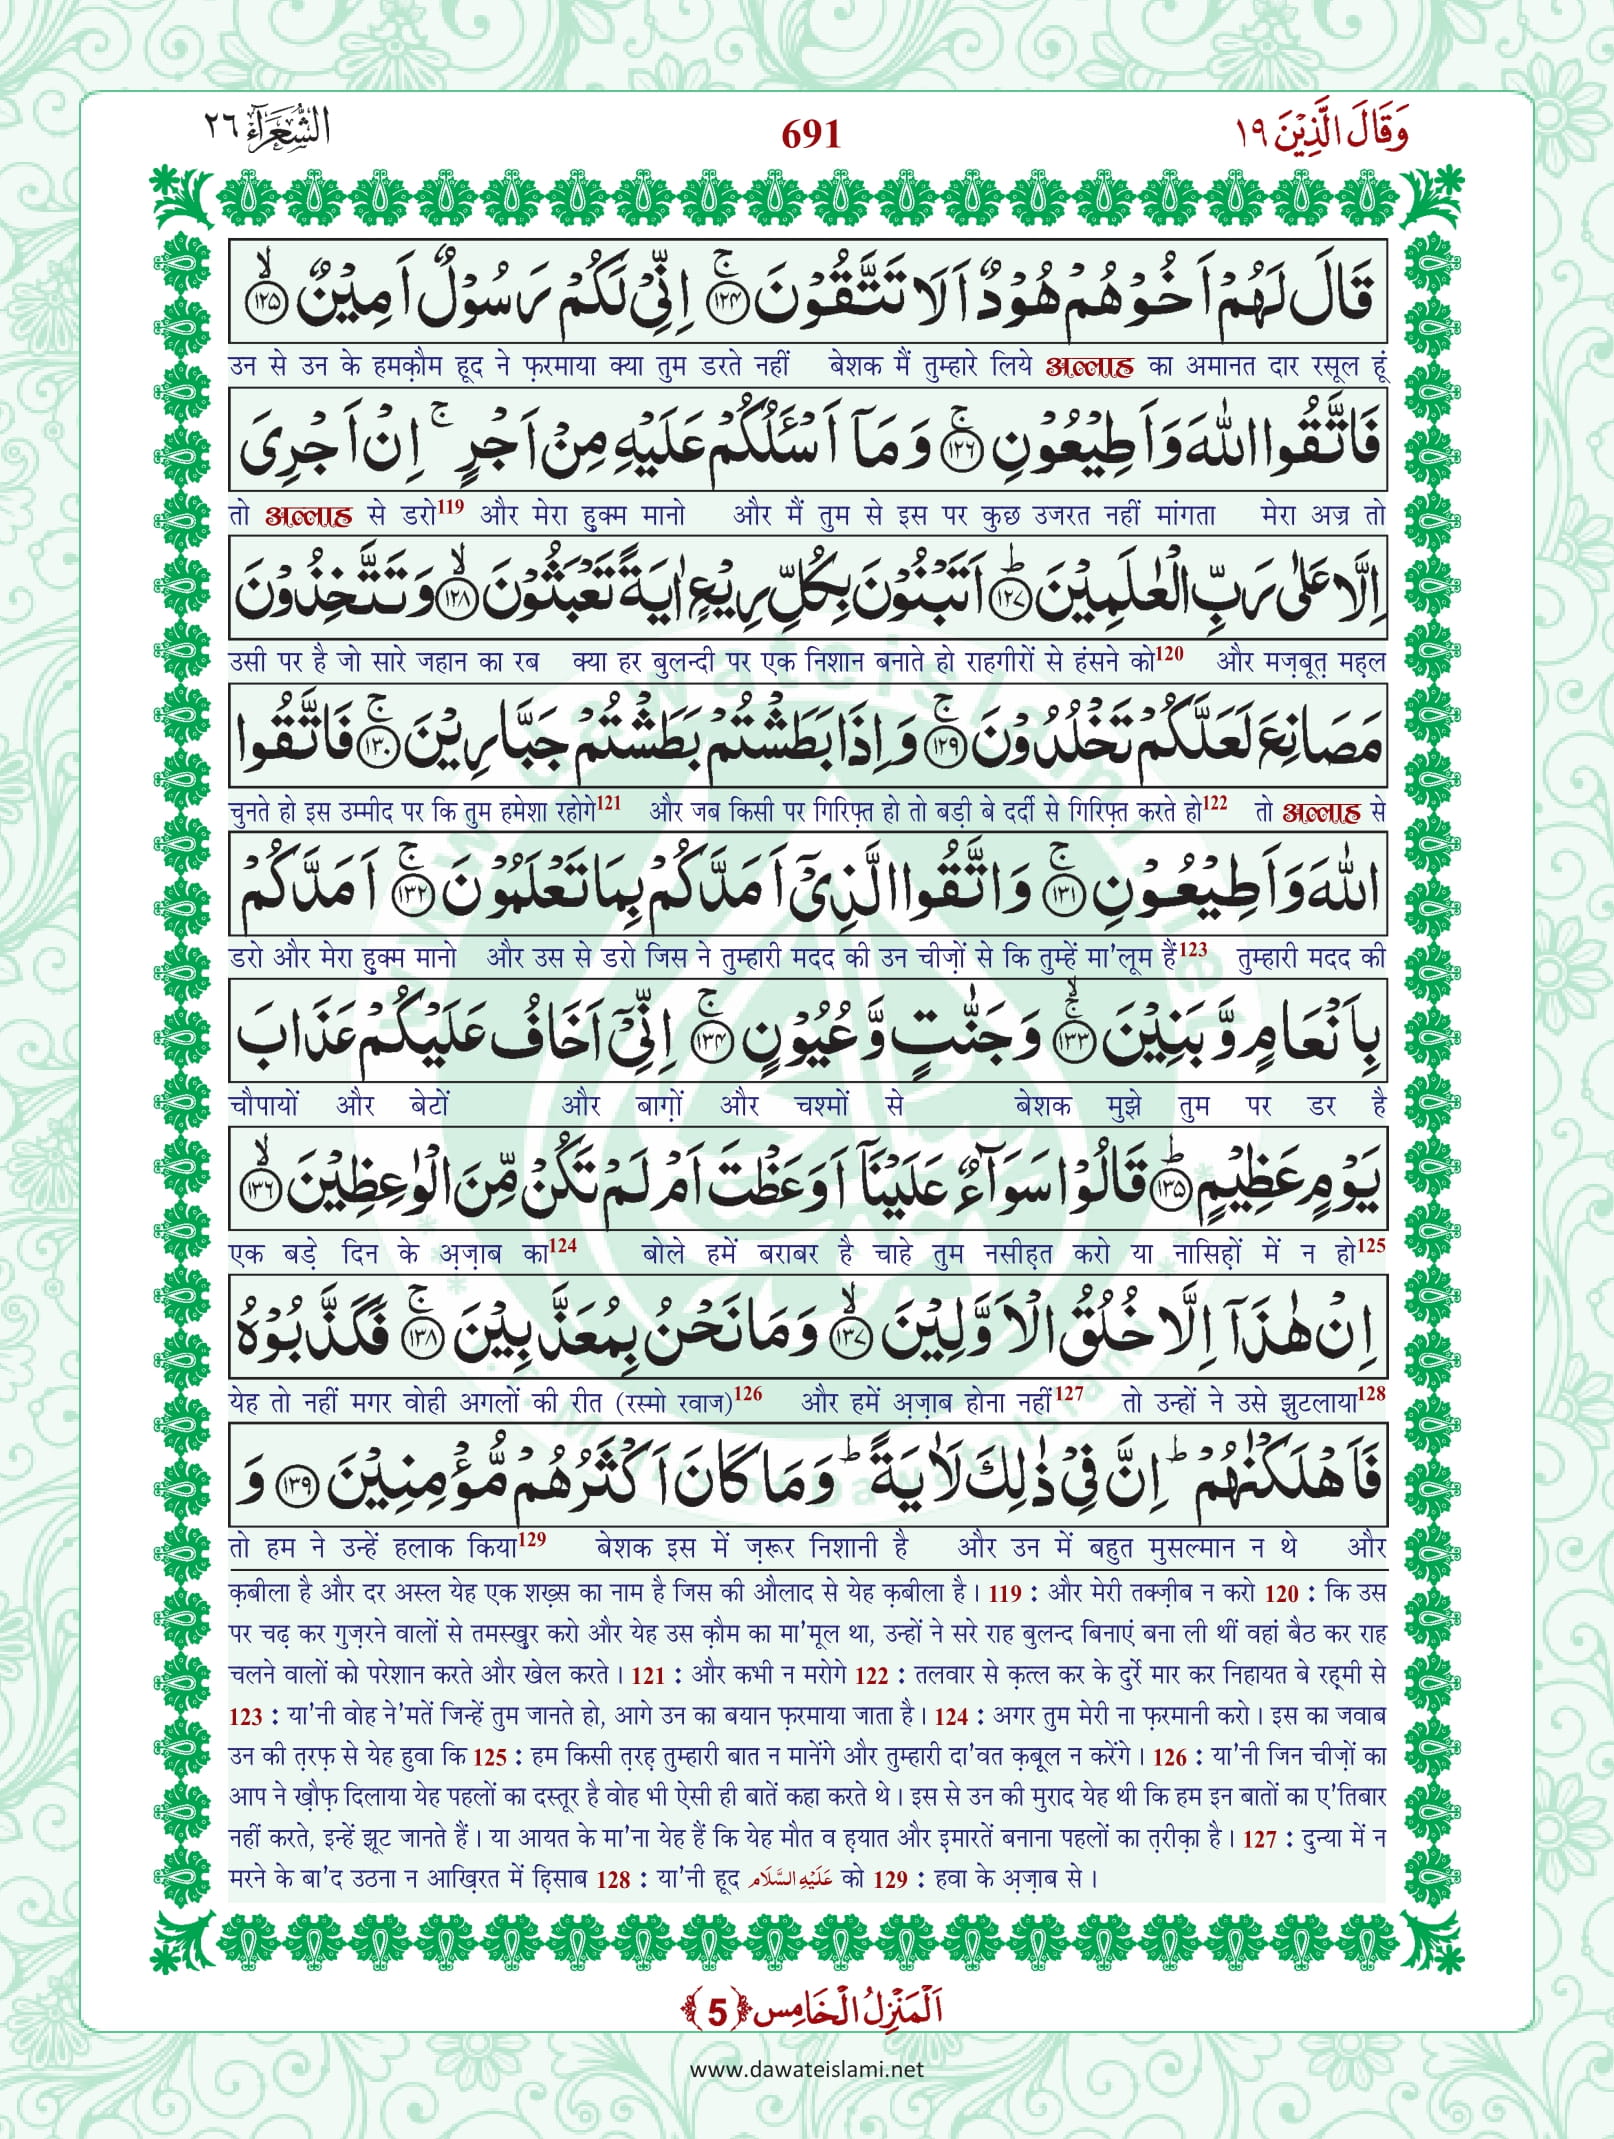 وَقَالَ الَّذِیْنَ ١٩ 691 الشُّعَرَآء ٢٦
قَالَ لَهُمْ اَخُوْهُمْ هُوْدٌ اَلَا تَتَّقُوْنَۚ ﴿۱۲۴﴾ اِنِّیْ لَكُمْ رَسُوْلٌ اَمِیْنٌۙ ﴿۱۲۵﴾
उन से उन के हमक़ौम हूद ने फ़रमाया क्या तुम डरते नहीं बेशक मैं तुम्हारे लिये अल्लाह का अमानत दार रसूल हूं
فَاتَّقُوا اللّٰهَ وَ اَطِیْعُوْنِۚ ﴿۱۲۶﴾ وَ مَاۤ اَسْـَٔلُكُمْ عَلَیْهِ مِنْ اَجْرٍۚ اِنْ اَجْرِیَ
तो अल्लाह से डरो119 और मेरा हुक्म मानो और मैं तुम से इस पर कुछ उजरत नहीं मांगता मेरा अज्र तो
اِلَّا عَلٰى رَبِّ الْعٰلَمِیْنَؕ ﴿۱۲۷﴾ اَتَبْنُوْنَ بِكُلِّ رِیْعٍ اٰیَةً تَعْبَثُوْنَۙ ﴿۱۲۸﴾ وَ تَتَّخِذُوْنَ
उसी पर है जो सारे जहान का रब क्या हर बुलन्दी पर एक निशान बनाते हो राहगीरों से हंसने को120 और मज़बूत़ मह़ल
مَصَانِعَ لَعَلَّكُمْ تَخْلُدُوْنَۚ ﴿۱۲۹﴾ وَ اِذَا بَطَشْتُمْ بَطَشْتُمْ جَبَّارِیْنَۚ ﴿۱۳۰﴾ فَاتَّقُوا
चुनते हो इस उम्मीद पर कि तुम हमेशा रहोगे121 और जब किसी पर गिरिफ़्त हो तो बड़ी बे दर्दी से गिरिफ़्त करते हो122 तो अल्लाह से
اللّٰهَ وَ اَطِیْعُوْنِۚ ﴿۱۳۱﴾ وَ اتَّقُوا الَّذِیْۤ اَمَدَّكُمْ بِمَا تَعْلَمُوْنَۚ ﴿۱۳۲﴾ اَمَدَّكُمْ
डरो और मेरा हुक्म मानो और उस से डरो जिस ने तुम्हारी मदद की उन चीज़ों से कि तुम्हें मा'लूम हैं123 तुम्हारी मदद की
بِاَنْعَامٍ وَّ بَنِیْنَۚۙ ﴿۱۳۳﴾ وَ جَنّٰتٍ وَّ عُیُوْنٍۚ ﴿۱۳۴﴾ اِنِّیْۤ اَخَافُ عَلَیْكُمْ عَذَابَ
चौपायों और बेटों और बाग़ों और चश्मों से बेशक मुझे तुम पर डर है
یَوْمٍ عَظِیْمٍؕ ﴿۱۳۵﴾ قَالُوْا سَوَآءٌ عَلَیْنَاۤ اَوَ عَظْتَ اَمْ لَمْ تَكُنْ مِّنَ الْوٰعِظِیْنَۙ ﴿۱۳۶﴾
एक बड़े दिन के अ़ज़ाब का124 बोले हमें बराबर है चाहे तुम नसीह़त करो या नासिह़ों में न हो125
اِنْ هٰذَاۤ اِلَّا خُلُقُ الْاَوَّلِیْنَۙ ﴿۱۳۷﴾ وَ مَا نَحْنُ بِمُعَذَّبِیْنَۚ ﴿۱۳۸﴾ فَكَذَّبُوْهُ
येह तो नहीं मगर वोही अगलों की रीत (रस्मो रवाज)126 और हमें अ़ज़ाब होना नहीं127 तो उन्हों ने उसे झुटलाया128
فَاَهْلَكْنٰهُمْؕ اِنَّ فِیْ ذٰلِكَ لَاٰیَةًؕ وَ مَا كَانَ اَكْثَرُهُمْ مُّؤْمِنِیْنَ ﴿۱۳۹﴾ وَ
तो हम ने उन्हें हलाक किया129 बेशक इस में ज़रूर निशानी है और उन में बहुत मुसल्मान न थे और
क़बीला है और दर अस्ल येह एक शख़्स का नाम है जिस की औलाद से येह क़बीला है। 119 : और मेरी तक्ज़ीब न करो 120 : कि उस
पर चढ़ कर गुज़रने वालों से तमस्ख़ुर करो और येह उस क़ौम का मा'मूल था, उन्हों ने सरे राह बुलन्द बिनाएं बना ली थीं वहां बैठ कर राह
चलने वालों को परेशान करते और खेल करते। 121 : और कभी न मरोगे 122 : तलवार से क़त्ल कर के दुर्रे मार कर निहायत बे रह़मी से
123 : या'नी वोह ने'मतें जिन्हें तुम जानते हो, आगे उन का बयान फ़रमाया जाता है। 124 : अगर तुम मेरी ना फ़रमानी करो। इस का जवाब
उन की त़रफ़ से येह हुवा कि 125 : हम किसी त़रह़ तुम्हारी बात न मानेंगे और तुम्हारी दा'वत क़बूल न करेंगे। 126 : या'नी जिन चीज़ों का
आप ने ख़ौफ़ दिलाया येह पहलों का दस्तूर है वोह भी ऐसी ही बातें कहा करते थे। इस से उन की मुराद येह थी कि हम इन बातों का ए'तिबार
नहीं करते, इन्हें झूट जानते हैं। या आयत के मा'ना येह हैं कि येह मौत व ह़यात और इ़मारतें बनाना पहलों का त़रीक़ा है। 127 : दुन्या में न
मरने के बा'द उठना न आख़िरत में हि़साब 128 : या'नी हूद عَلَيْهِ السَّلَام को 129 : हवा के अ़ज़ाब से।
اَلْمَنْزِلُ الْخَامِس ﴿5﴾
www.dawateislami.net